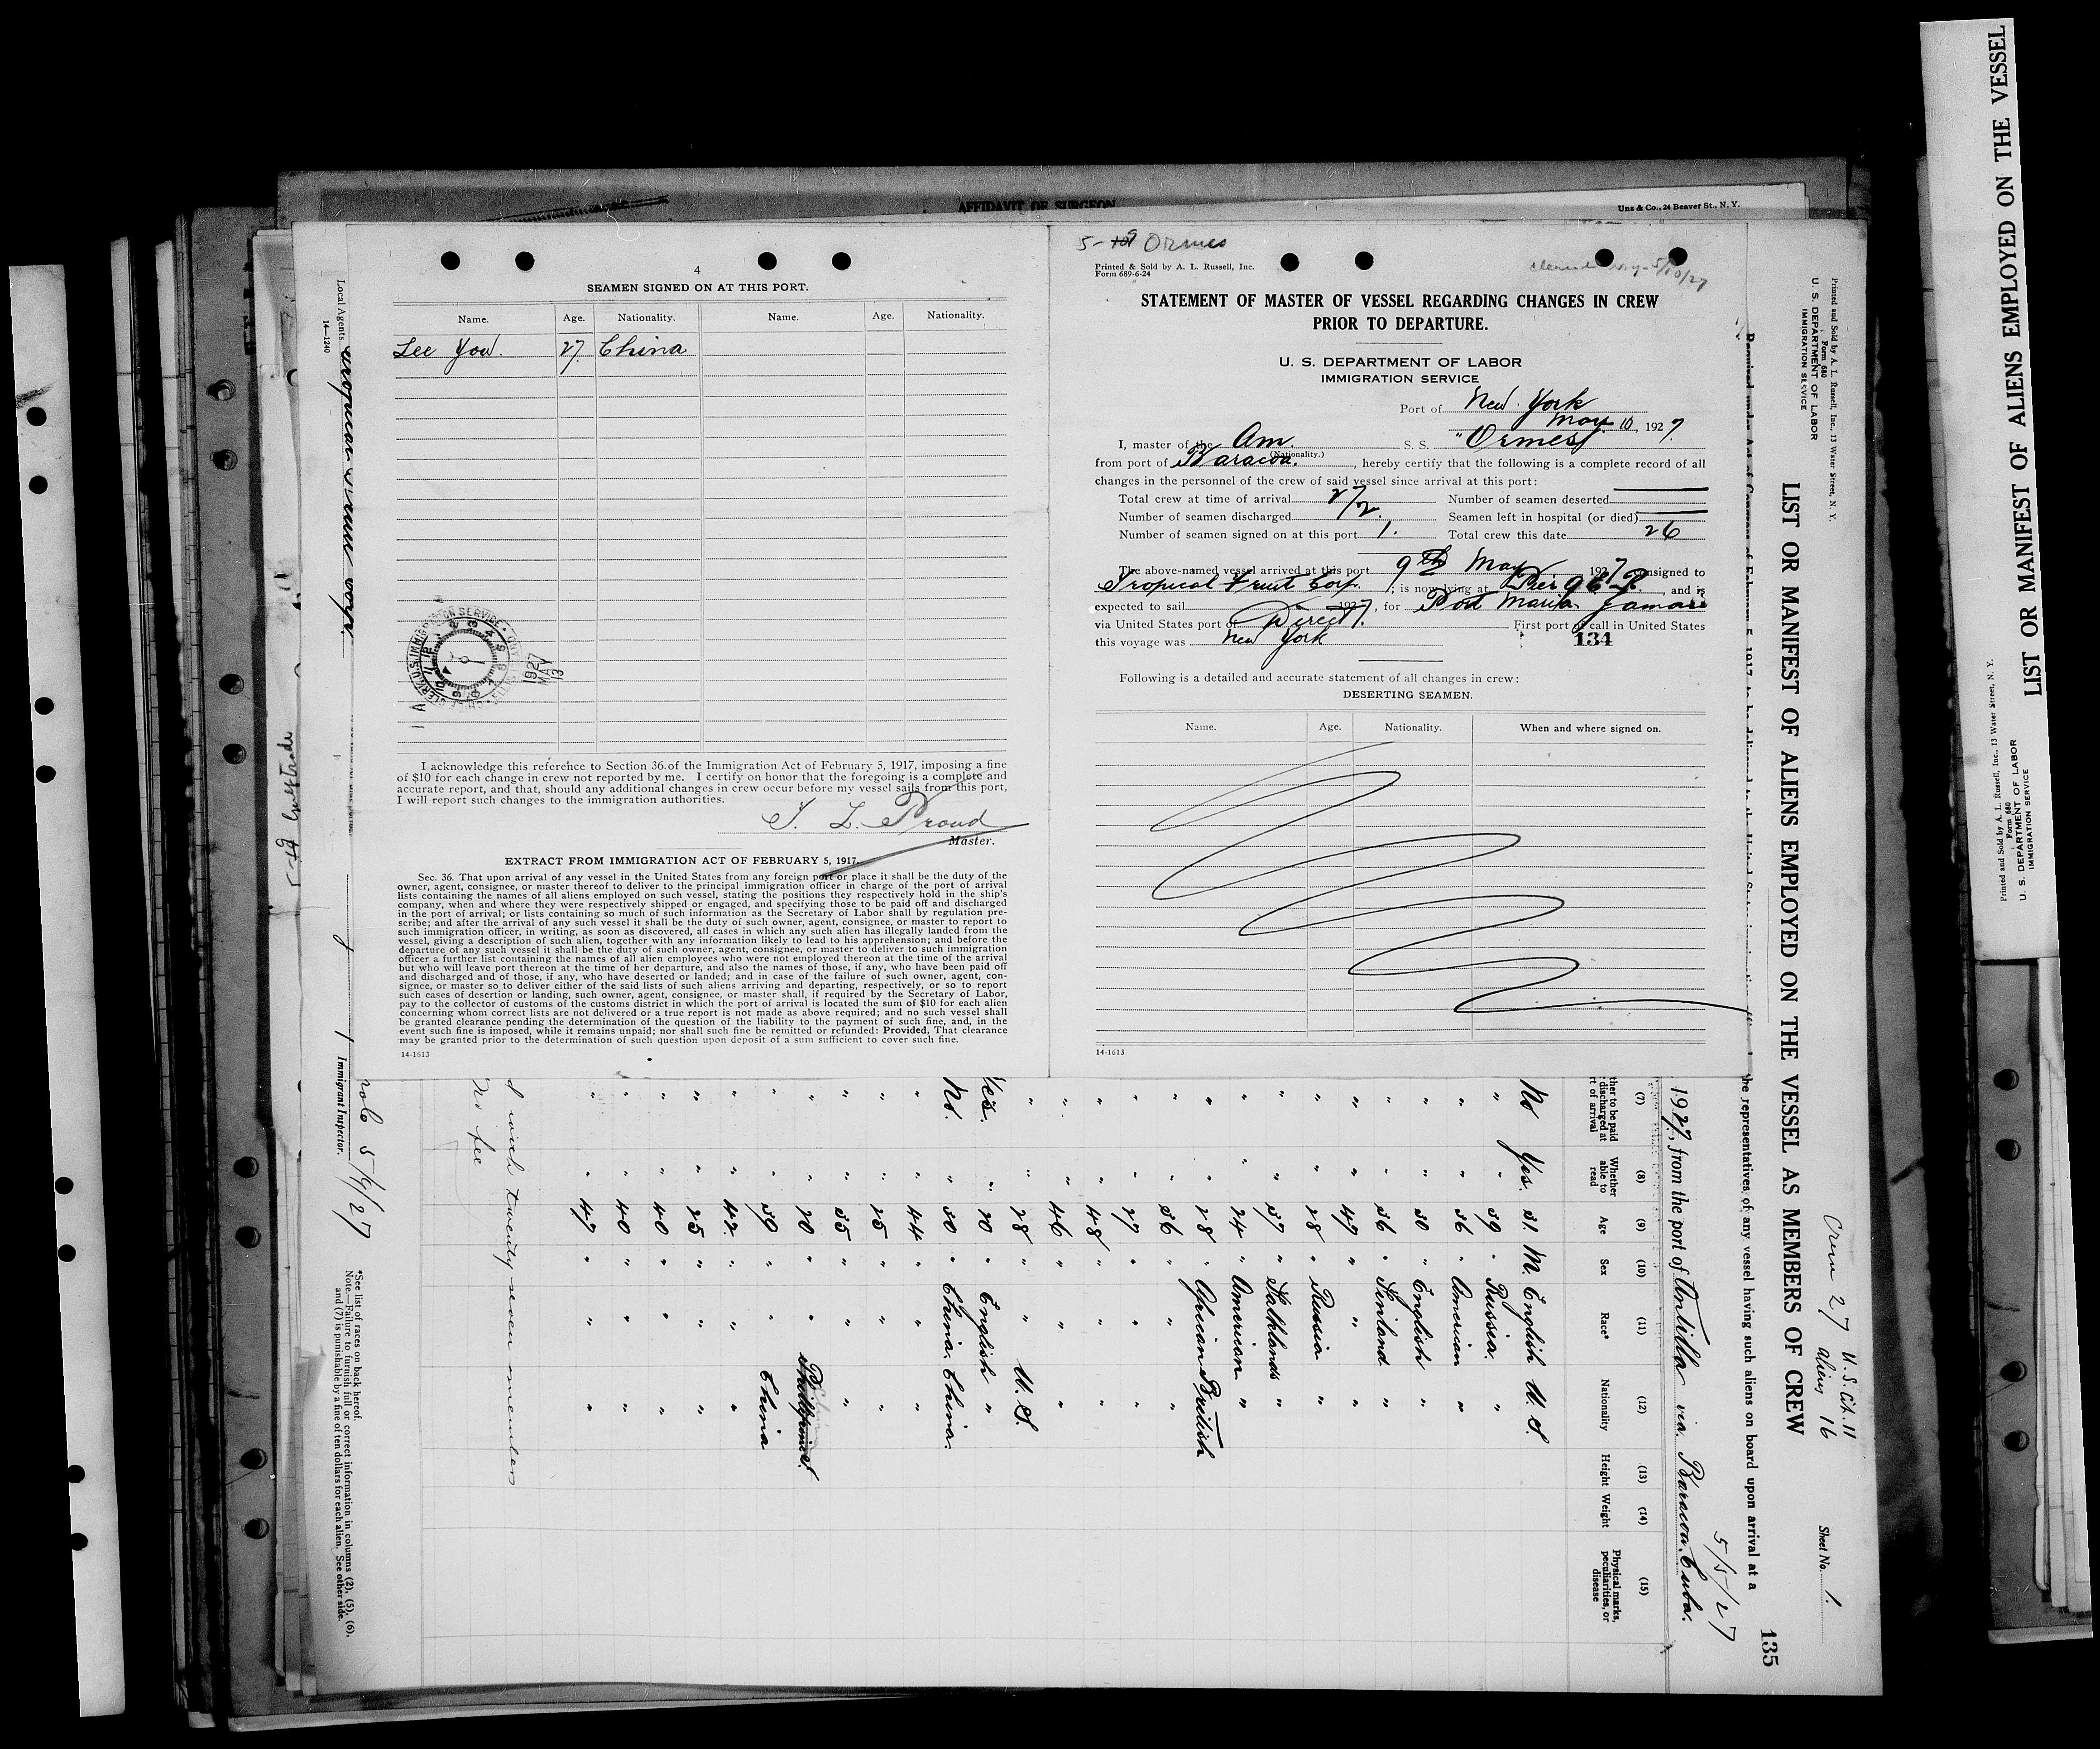 AFFIDAVIT OF SURGEON
Una & Co., 24 Beaver St., N. Y.
4
SEAMEN SIGNED ON AT THIS PORT.
Name. Age. Nationality. Name. Age. Nationality.
Lee You. 27 China
1927
MAY
13
I acknowledge this reference to Section 36 of the Immigration Act of February 5, 1917, imposing a fine
of $10 for each change in crew not reported by me. I certify on honor that the foregoing is a complete and
accurate report, and that, should any additional changes in crew occur before my vessel sails from this port,
I will report such changes to the immigration authorities.
Proud
Master.
EXTRACT FROM IMMIGRATION ACT OF FEBRUARY 5, 1917.
Sec. 36. That upon arrival of any vessel in the United States from any foreign port or place it shall be the duty of the
owner, agent, consignee, or master thereof to deliver to the principal immigration officer in charge of the port of arrival
lists containing the names of all aliens employed on such vessel, stating the positions they respectively hold in the ship's
company, when and where they were respectively shipped or engaged, and specifying those to be paid off and discharged
in the port of arrival; or lists containing so much of such information as the Secretary of Labor shall by regulation pre-
scribe; and after the arrival of any such vessel it shall be the duty of such owner, agent, consignee, or master to report to
such immigration officer, in writing, as soon as discovered, all cases in which any such alien has illegally landed from the
vessel, giving a description of such alien, together with any information likely to lead to his apprehension; and before the
departure of any such vessel it shall be the duty of such owner, agent, consignee, or master to deliver to such immigration
officer a further list containing the names of all alien employees who were not employed thereon at the time of the arrival
but who will leave port thereon at the time of her departure, and also the names of those, if any, who have been paid off
and discharged and of those, if any, who have deserted or landed; and in case of the failure of such owner, agent, con-
signee, or master so to deliver either of the said lists of such aliens arriving and departing, respectively, or so to report
such cases of desertion or landing, such owner, agent, consignee, or master shall, if required by the Secretary of Labor,
pay to the collector of customs of the customs district in which the port of arrival is located the sum of $10 for each alien
concerning whom correct lists are not delivered or a true report is not made as above required; and no such vessel shall
be granted clearance pending the determination of the question of the liability to the payment of such fine, and, in the
event such fine is imposed, while it remains unpaid; nor shall such fine be remitted or refunded: Provided, That clearance
may be granted prior to the determination of such question upon deposit of a sum sufficient to cover such fine.
14-1613
5-9 Ormes
Printed & Sold by A. L. Russell, Inc.
Form 689-6-24
5/10/27
STATEMENT OF MASTER OF VESSEL REGARDING CHANGES IN CREW
PRIOR TO DEPARTURE.
U. S. DEPARTMENT OF LABOR
IMMIGRATION SERVICE
Port of New York
May 10, 1927
I, master of the Am. S. S. "Ormes"
(Nationality.)
from port of Baracoa. , hereby certify that the following is a complete record of all
changes in the personnel of the crew of said vessel since arrival at this port:
Total crew at time of arrival 27 Number of seamen deserted
Number of seamen discharged 2. Seamen left in hospital (or died)
Number of seamen signed on at this port 1. Total crew this date 26
The above-named vessel arrived at this port 9th May 1927, consigned to
Tropical Fruit Corp. ; is now lying at Pier 9 E. R. , and is
expected to sail 1927, for Port Maria Jamaica
via United States port of Direct. First port of call in United States
this voyage was New York
134
Following is a detailed and accurate statement of all changes in crew:
DESERTING SEAMEN.
Name. Age. Nationality. When and where signed on.
14-1613
Printed and Sold by A. L. Russell, Inc., 13 Water Street, N. Y.
Form 680
U. S. DEPARTMENT OF LABOR
IMMIGRATION SERVICE
LIST OR MANIFEST OF ALIENS EMPLOYED ON THE VESSEL AS MEMBERS OF CREW
Crew 27 U.S. Cit. 11
aliens 16
Sheet No. 1.
the representatives of any vessel having such aliens on board upon arrival at a
135
5/5/27
1927, from the port of Antilla via. Baracoa, Cuba.
(7) (8) (9) (10) (11) (12) (13) (14) (15)
ther to be paid discharged at rt of arrival
Whether able to read
Age
Sex
Race*
Nationality
Height
Weight
Physical marks, peculiarities, or disease
No Yes. 31. M. English U. S.
" " 39 " Russia. "
" " 36 " American "
" " 30 " English "
" " 36 " Finland "
" " 47 " " "
" " 28 " Russia "
" " 37 " Falklands "
" " 24 " American "
" " 28 " African British
" " 36 " " "
" " 27 " " "
" " 48 " " "
" " 46 " " "
" " 28 " " U. S.
Yes. " 20 " English "
No. " 30 " China. China.
" " 44 " " "
" " 25 " " "
" " 35 " " "
" " 20 " " Phillipines.
" " 39 " " China
" " 42 " " "
" " 25 " " "
" " 40 " " "
" " 40 " " "
" " 47 " " "
with twenty seven members
No fee
5/9/27
Immigrant Inspector.
*See list of races on back hereof.
Note.—Failure to furnish full or correct information in columns (2), (5), (6),
and (7) is punishable by a fine of ten dollars for each alien. See other side.
Local Agents
14—1240
LIST OR MANIFEST OF ALIENS EMPLOYED ON THE VESSEL
Printed and Sold by A. L. Russell, Inc., 13 Water Street, N. Y.
Form 680
U. S. DEPARTMENT OF LABOR
IMMIGRATION SERVICE
LIST OR MANIFEST OF ALIENS EMPLOYED ON THE VESSEL